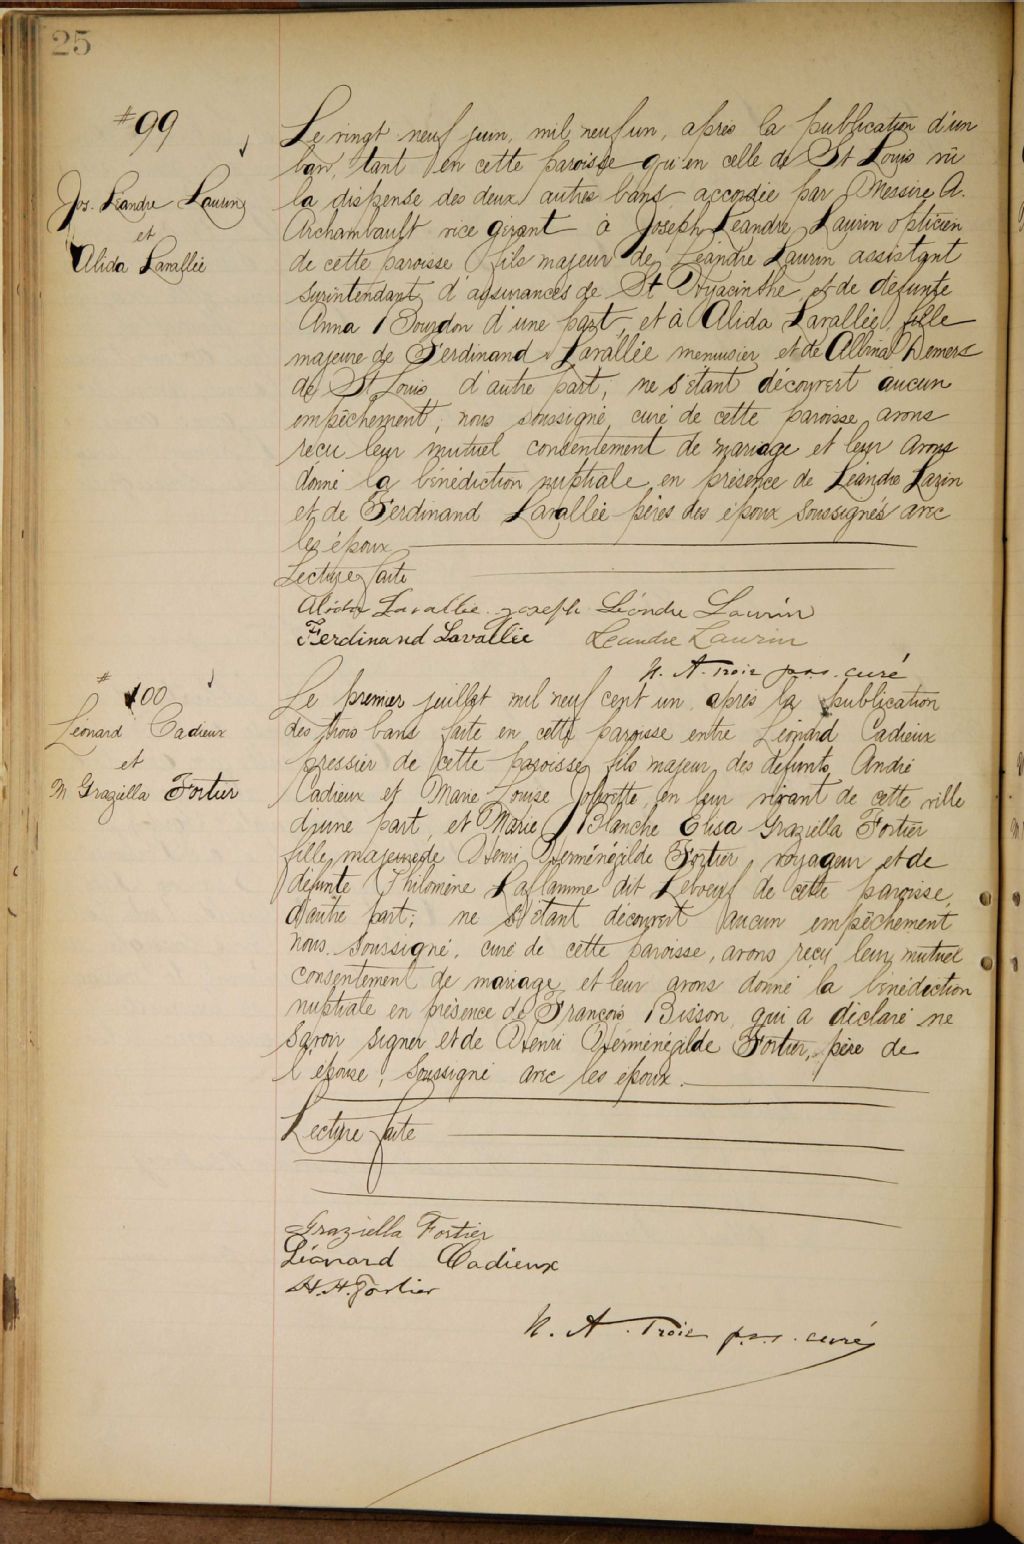 25
#99
Jos. Léandre Laurin
et
Alida Lavallée
Le vingt neuf juin, mil neuf un, après la publication d'un
ban, tant en cette paroisse qu'en celle de St Louis vû
la dispense des deux autres bans accordée par Messire A.
Archambault vice gérant à Joseph Léandre Laurin opticien
de cette paroisse fils majeur de Léandre Laurin assistant
surintendant d'assurances de St Hyacinthe et de défunte
Anna Bourdon d'une part, et à Alida Lavallée, fille
majeure de Ferdinand Lavallée menuisier et de Albina Demers
de St Louis d'autre part; ne s'étant découvert aucun
empêchement, nous soussigné, curé de cette paroisse avons
reçu leur mutuel consentement de mariage et leur avons
donné la bénédiction nuptiale en présence de Léandre Laurin
et de Ferdinand Lavallée pères des époux soussignés avec
les époux
Lecture faite
Alida Lavallée. Joseph Léandre Laurin
Ferdinand Lavallée Leandre Laurin
N. A. Troie p.s.s. curé
# 100
Léonard Cadieux
et
M Graziella Fortier
Le premier juillet mil neuf cent un, après la publication
des trois bans faite en cette paroisse entre Léonard Cadieux
pressier de cette paroisse fils majeur des défunts André
Cadieux et Marie Louise en leur vivant de cette ville
d'une part, et Marie Blanche Elisa Graziella Fortier
fille majeure de Henri Herménégilde Fortier, voyageur et de
défunte Philomène Laflamme dit de cette paroisse,
d'autre part; ne s'étant découvert aucun empêchement
nous soussigné, curé de cette paroisse, avons reçu leur mutuel
consentement de mariage et leur avons donné la bénédiction
nuptiale en présence de François Bisson qui a déclaré ne
savoir signer et de Henri Herménégilde Fortier, père de
l'épouse, soussigné avec les époux.
Lecture faite
Graziella Fortier
Léonard Cadieux
H. H. Fortier
N. A. Troie p.s.s. curé